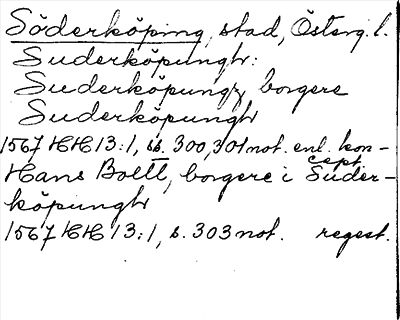 Söderköping, stad, Österg. l.
Suderköpungh:
Suderköpungz borgere
Suderköpungh
1567 HH 13:1, ss. 300, 301 not. enl. kon-
cept
Hans Boett, borgere i Suder-
köpungh
1567 HH 13:1, s. 303 not. regest.